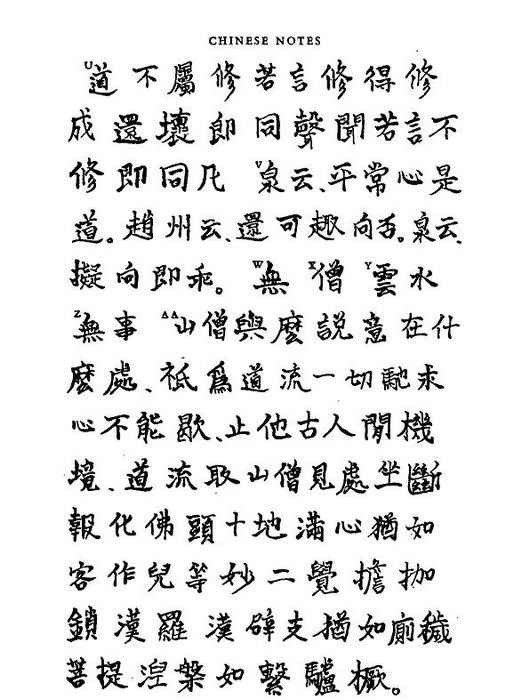 CHINESE NOTES
U道不屬修若言修得修
成還壞即同聲聞若言不
修即同凡 V泉云、平常心是
道。趙州云、還可趣向否。泉云、
擬向即乖。 W無 X僧 Y雲水
Z無事 AA山僧與麼説意在什
麼處、祇爲道流一切馳求
心不能歇、止他古人閒機
境、道流取山僧見處坐斷
報化佛頭十地滿心猶如
客作兒等妙二覺擔枷
鎖漢羅漢辟支猶如廁穢
菩提涅槃如繫驢橛。